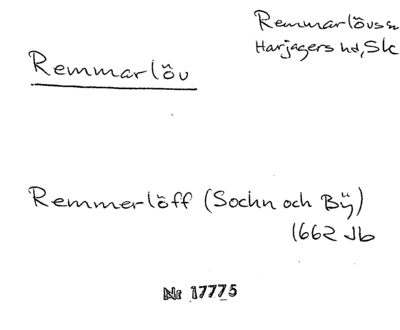 Remmarlövs sn
Harjagers hd, Sk
Remmarlöv
Remmerlöff (Sochn och Bÿ)
1662 Jb
Nr 17775